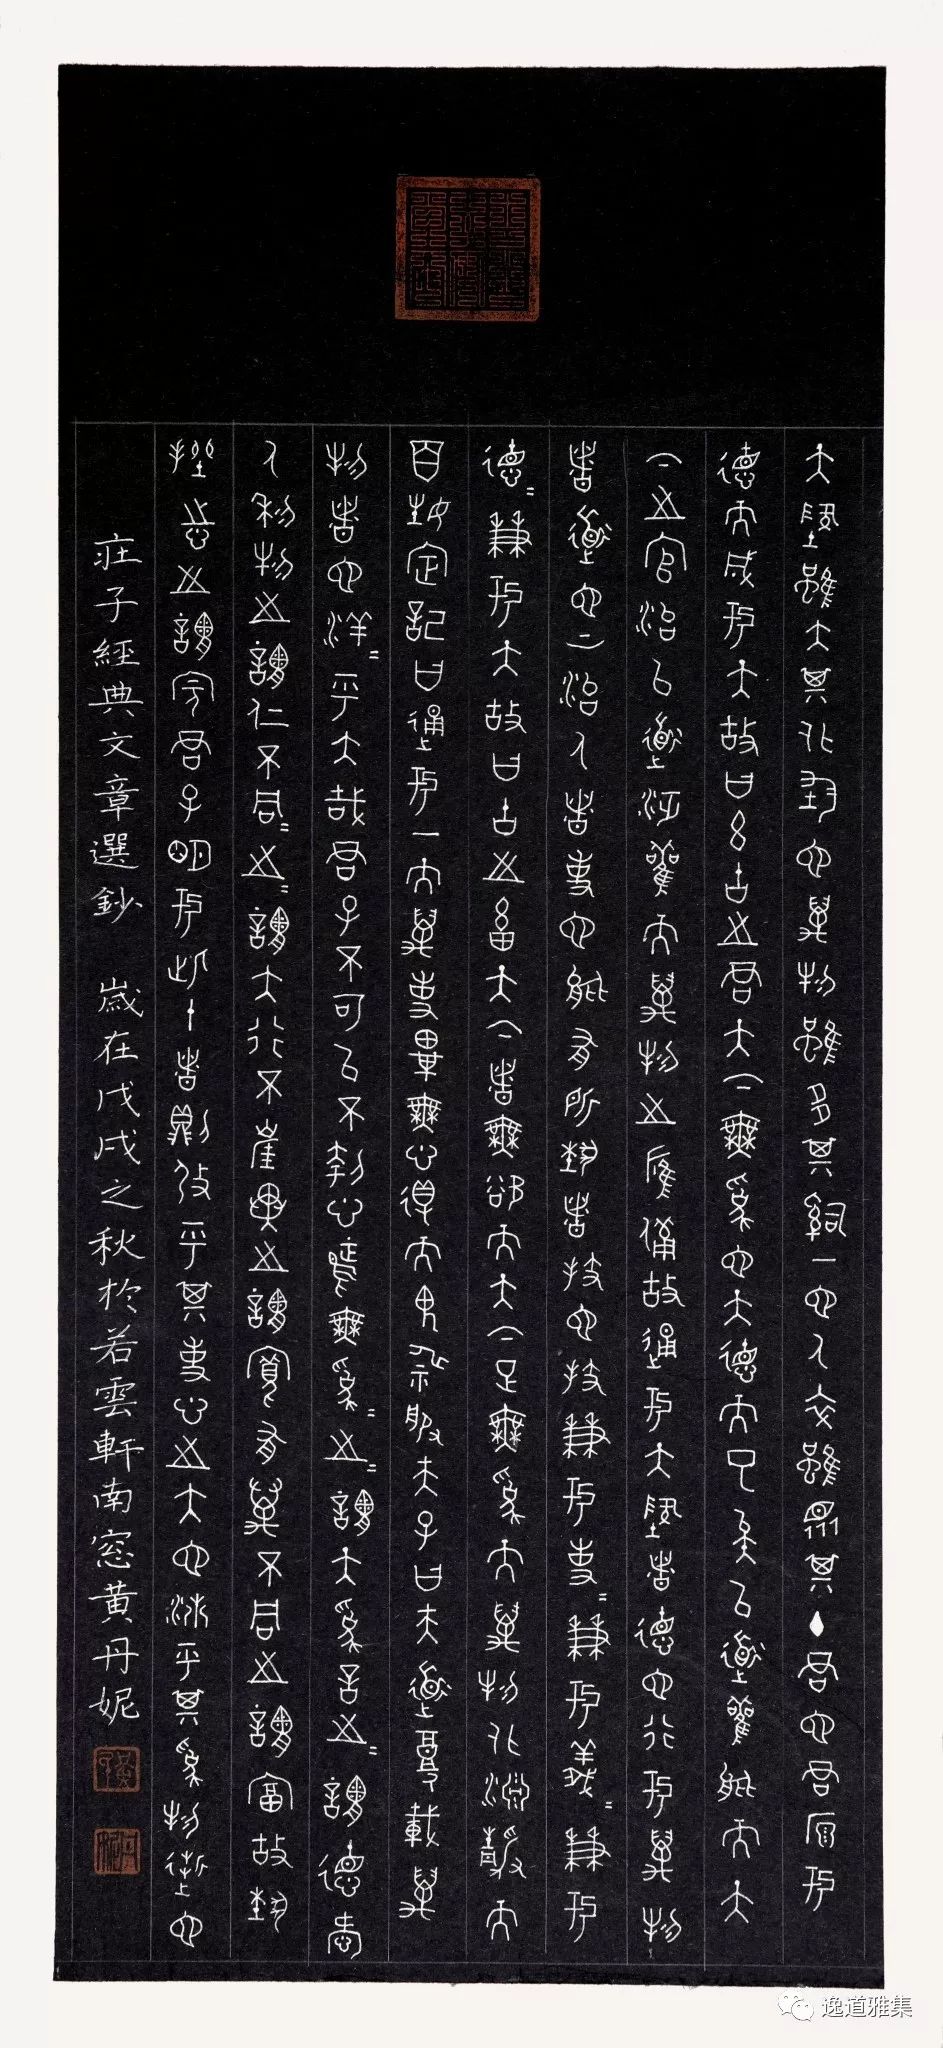 天地雖大其化均也萬物雖多其治一也人卒雖眾其主君也君原於
德而成於天故曰玄古之君天下無為也天德而已矣以道觀能而天
下之官治以道汎觀而萬物之應備故通於天地者德也行於萬物
者道也上治人者事也能有所藝者技也技兼於事=兼於義=兼於
德=兼於天故曰古之畜天下者無欲而天下足無為而萬物化淵靜而
百姓定記曰通於一而萬事畢無心得而鬼神服夫子曰夫道覆載萬
物者也洋=乎大哉君子不可以不刳心焉無為=之=謂天為言之=謂德愛
人利物之謂仁不同=之=謂大行不崖異之謂寬有萬不同之謂富故執
挫志之謂完君子明於此十者則韜乎其事心之大也沛乎其為物逝也
莊子經典文章選鈔 歲在戊戌之秋於若雲軒南窓黃丹妮
逸道雅集